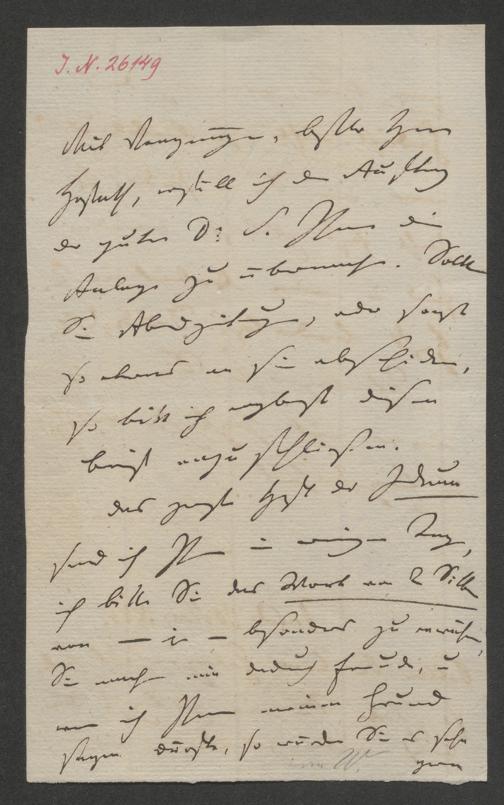 I. N. 26149
Mit Vergnügen, bester Herr
Hofrath, erfülle ich den Auftrag
des guten Dr. S. Ihnen die
Anlage zu übermachen. Sollten
Sie Abendzeitungen, oder sonst
so etwas an sie abschicken,
so bitte ich ergebenst diesen
anzuschließen.
das Heft der
send ich Ihnen in einigen Tagen,
ich bitte Sie das Wort am 2
von — i — besonders zu
Sie machen mir dadurch Freude, u
wenn ich Ihnen meinen Grund
sagen dürfte, so würden Sie es sehr
gern